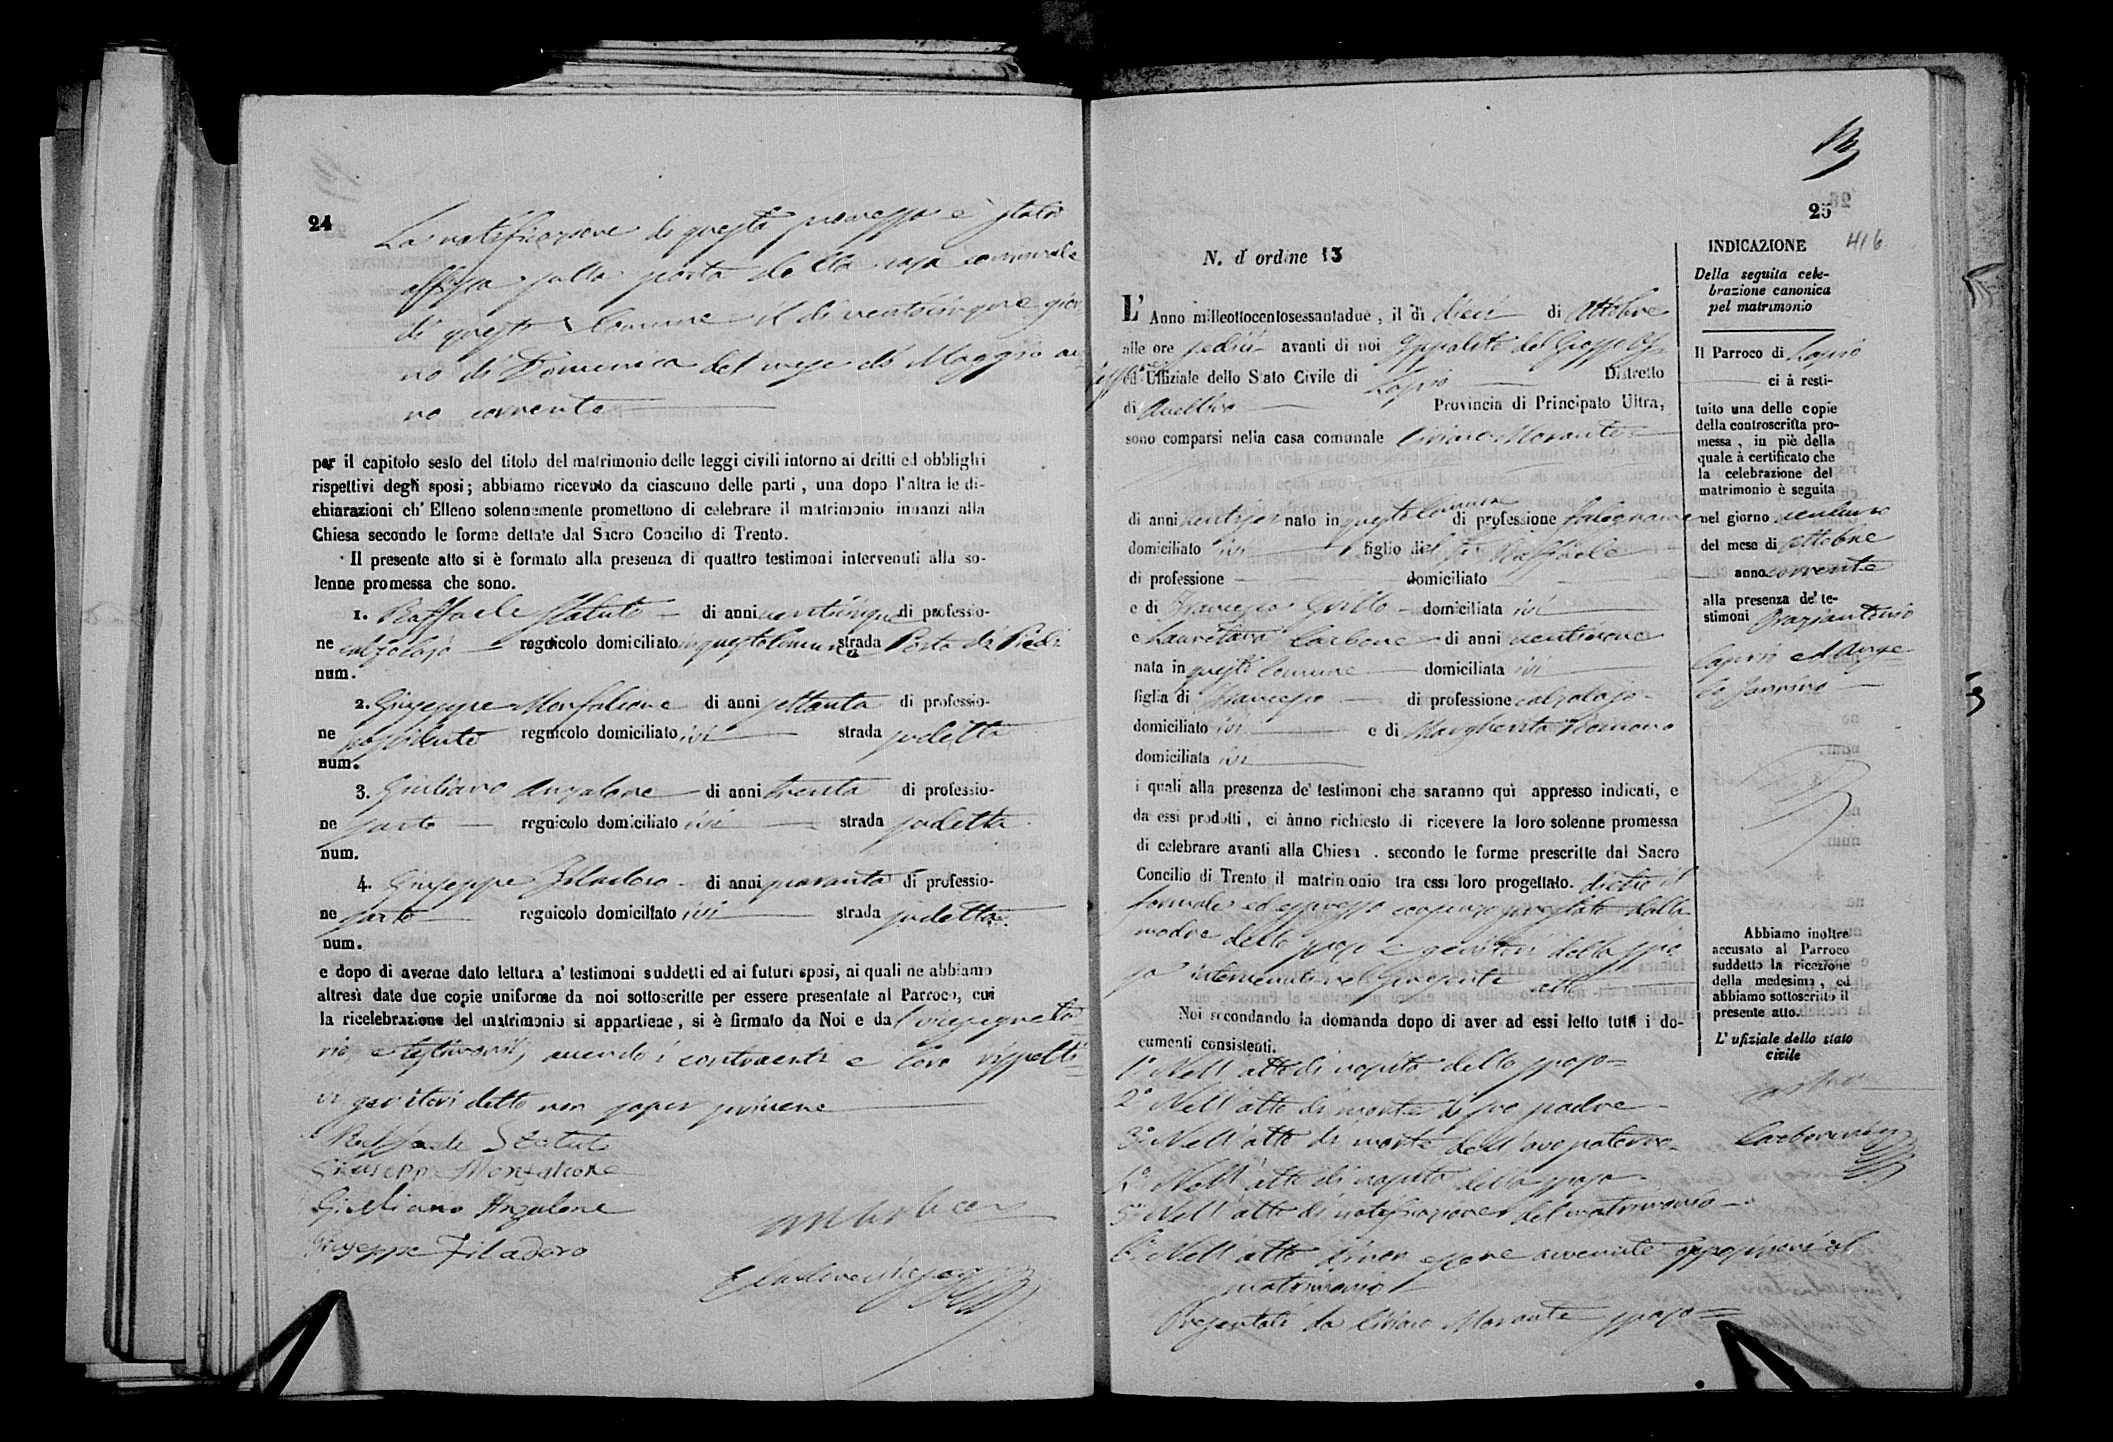 24
La notificazione di questa promessa è stata
affissa sulla porta della casa comunale
di questo Comune il di venticinque gior
no di Domenica del mese di Maggio an
no corrente
per il capitolo sesto del titolo del matrimonio delle leggi civili intorno ai dritti ed obblighi
rispettivi degli sposi; abbiamo ricevuto da ciascuno delle parti, una dopo l'altra le di-
chiarazioni ch' Elleno solennemente promettono di celebrare il matrimonio innanzi alla
Chiesa secondo le forme dettate dal Sacro Concilio di Trento.
Il presente atto si è formato alla presenza di quattro testimoni intervenuti alla so-
lenne promessa che sono.
1. Raffaele Statuto di anni venticinque di professio-
ne calzolajo regnicolo domiciliato in questo Comune strada Porta di Piedi
num.
2. Giuseppe Monfalcone di anni settanta di professio-
ne possidente regnicolo domiciliato ivi strada sudetta
num.
3. Giuliano Anzalone di anni trenta di professio-
ne sarto regnicolo domiciliato ivi strada sudetta
num.
4. Giuseppe Filadoro di anni quaranta di professio-
ne sarto regnicolo domiciliato ivi strada sudetta
num.
e dopo di averne dato lettura a' testimoni suddetti ed ai futuri sposi, ai quali ne abbiamo
altresì date due copie uniforme da noi sottoscritte per essere presentate al Parroco, cui
la ricelebrazione del matrimonio si appartiene, si è firmato da Noi e da
e testimonii, avendo i contraenti e loro rispetti
vi genitori detto non saper scrivere
Raffaele Statuto
Giuseppe Monfalcone
Giuliano Anzalone
Giuseppe Filadoro
13
25
416
N. d' ordine 13
L' Anno milleottocentosessantadue, il di dieci di Ottobre
alle ore sedici avanti di noi Ippolito del Grosso
ed Uffiziale dello Stato Civile di Lapio Distretto
di Avellino Provincia di Principato Ultra,
sono comparsi nella casa comunale Ciriaco Morante
di anni ventisei nato in questo Comune di professione falegname
domiciliato ivi figlio del fu Raffaele
di professione domiciliato
e di Francesca Grillo domiciliata ivi
e Lauretana Carbone di anni ventinove
nata in questo Comune domiciliata ivi
figlia di Francesco di professione calzolajo
domiciliato ivi e di Margherita Romano
domiciliata ivi
i quali alla presenza de' testimoni che saranno quì appresso indicati, e
da essi prodotti, ci ànno richiesto di ricevere la loro solenne promessa
di celebrare avanti alla Chiesa . secondo le forme prescritte dal Sacro
Concilio di Trento il matrimonio tra essi loro progettato. dietro il
formale ed espresso consenso prestato dalla
madre dello sposo e genitori della spo
sa intervenuti nel presente atto
Noi secondando la domanda dopo di aver ad essi letto tutti i do-
cumenti consistenti.
1° Nell' atto di nascita dello sposo
2° Nell' atto di morte di suo padre
3° Nell' atto di morte dell' avo paterno
4° Nell' atto di nascita della sposa
5° Nell' atto di notificazione del matrimonio
6° Nell' atto di non essere avvenute opposizioni al
matrimonio
Presentati da Ciriaco Morante sposo
INDICAZIONE
Della seguita cele-
brazione canonica
pel matrimonio
Il Parroco di Lapio
ci à resti-
tuito una delle copie
della controscritta pro-
messa, in piè della
quale à certificato che
la celebrazione del
matrimonio è seguita
nel giorno ventuno
del mese di Ottobre
anno corrente
alla presenza de' te-
stimoni Graziantonio
Caprio ed Ange-
lo Jannino
Abbiamo inoltre
accusato al Parroco
suddetto la ricezione
della medesima, ed
abbiamo sottoscritto il
presente atto.
L' ufiziale dello stato
civile